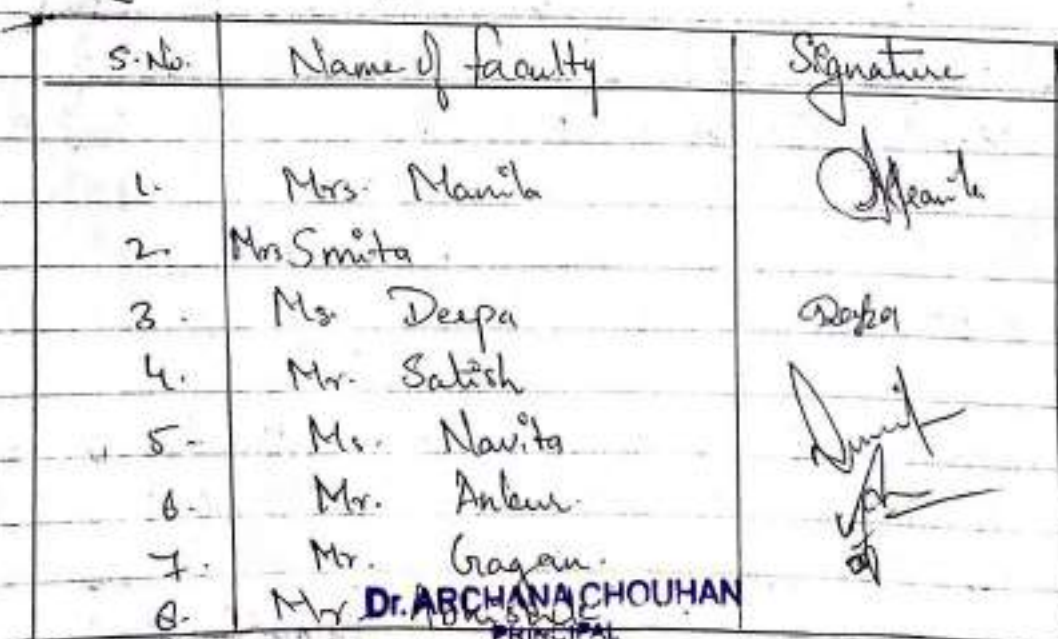 S.No. Name of faculty Signature
1. Mrs. Manila
2. Mrs Smita.
3. Ms. Deepa Deepa
4. Mr. Satish
5- Ms. Navita
6- Mr. Ankur.
7. Mr. Gagan.
8- Mr.
Dr. ARCHANA CHOUHAN
PRINCIPAL